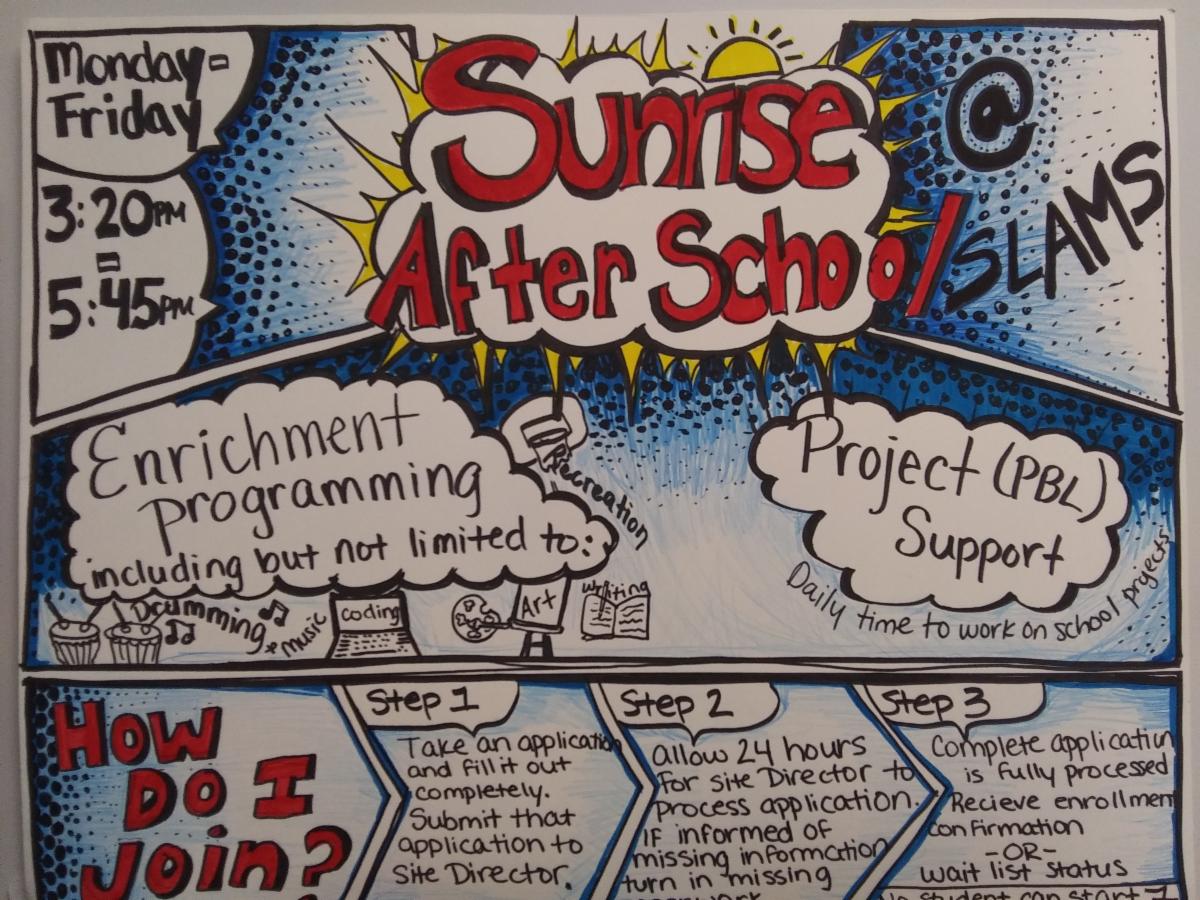 Monday-
Friday
3:20PM
=
5:45PM
Sunrise
After School
@
SLAMS
Enrichment
programming
including but not limited to:
Recreation
Drumming
+ music
coding
Art
writing
Project (PBL)
Support
Daily time to work on school projects
How
Do I
Join?
Step 1
Take an application
and fill it out
completely.
Submit that
application to
Site Director.
Step 2
Allow 24 hours
for site Director to
process application.
If informed of
missing information
turn in missing
Step 3
Complete application
is fully processed
Recieve enrollment
confirmation
-OR-
wait list status
No student can start